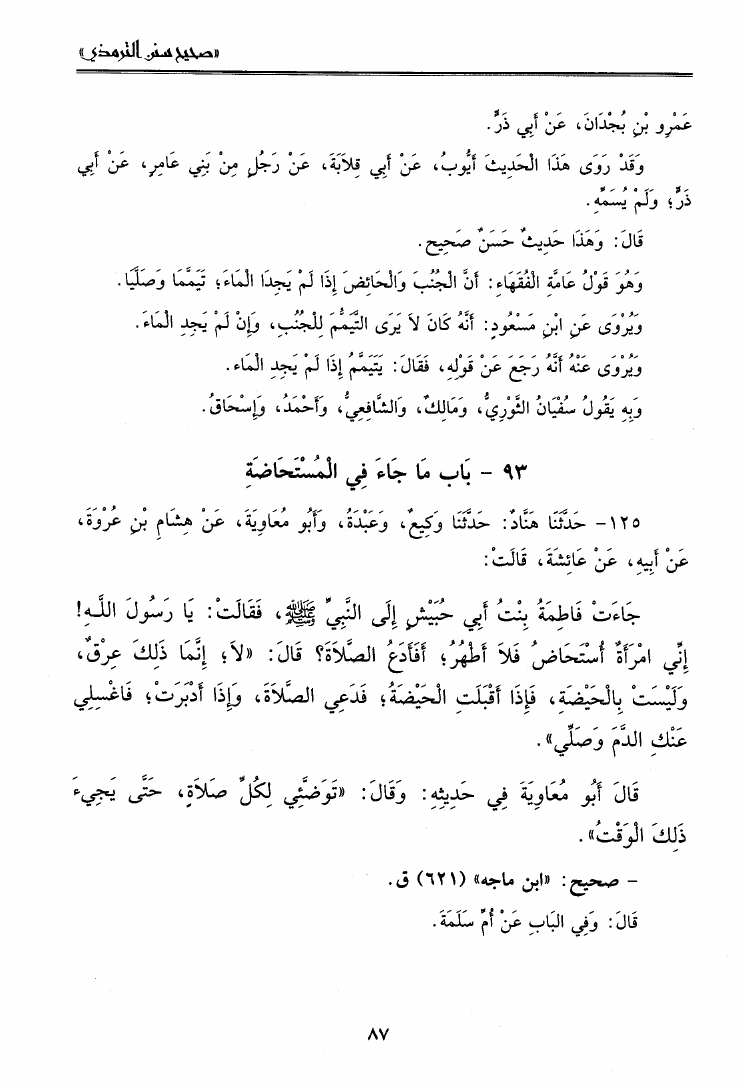 «صحيح سنن الترمذي»
عَمْرِو بْنِ بُجْدَانَ، عَنْ أَبِي ذَرٍّ.
وَقَدْ رَوَى هَذَا الْحَدِيثَ أَيُّوبُ، عَنْ أَبِي قِلَابَةَ، عَنْ رَجُلٍ مِنْ بَنِي عَامِرٍ، عَنْ أَبِي
ذَرٍّ؛ وَلَمْ يُسَمِّهِ.
قَالَ: وَهَذَا حَدِيثٌ حَسَنٌ صَحِيح.
وَهُوَ قَوْلُ عَامَّةِ الْفُقَهَاءِ: أَنَّ الْجُنُبَ وَالْحَائِضَ إِذَا لَمْ يَجِدَا الْمَاءَ؛ تَيَمَّمَا وَصَلَّيَا.
وَيُرْوَى عَنِ ابْنِ مَسْعُودٍ: أَنَّهُ كَانَ لَا يَرَى التَّيَمُّمَ لِلْجُنُبِ، وَإِنْ لَمْ يَجِدِ الْمَاءَ.
وَيُرْوَى عَنْهُ أَنَّهُ رَجَعَ عَنْ قَوْلِهِ، فَقَالَ: يَتَيَمَّمُ إِذَا لَمْ يَجِدِ الْمَاء.
وَبِهِ يَقُولُ سُفْيَانُ الثَّوْرِيُّ، وَمَالِكٌ، وَالشَّافِعِيُّ، وَأَحْمَدُ، وَإِسْحَاقُ.
٩٣ - بَاب مَا جَاءَ فِي الْمُسْتَحَاضَةِ
١٢٥- حَدَّثَنَا هَنَّادٌ: حَدَّثَنَا وَكِيعٌ، وَعَبْدَةُ، وَأَبُو مُعَاوِيَةَ، عَنْ هِشَامِ بْنِ عُرْوَةَ،
عَنْ أَبِيهِ، عَنْ عَائِشَةَ، قَالَتْ:
جَاءَتْ فَاطِمَةُ بِنْتُ أَبِي حُبَيْشٍ إِلَى النَّبِيِّ ﷺ، فَقَالَتْ: يَا رَسُولَ اللَّهِ!
إِنِّي امْرَأَةٌ أُسْتَحَاضُ فَلَا أَطْهُرُ؛ أَفَأَدَعُ الصَّلَاةَ؟ قَالَ: «لَا؛ إِنَّمَا ذَلِكَ عِرْقٌ،
وَلَيْسَتْ بِالْحَيْضَةِ، فَإِذَا أَقْبَلَتِ الْحَيْضَةُ؛ فَدَعِي الصَّلَاةَ، وَإِذَا أَدْبَرَتْ؛ فَاغْسِلِي
عَنْكِ الدَّمَ وَصَلِّي».
قَالَ أَبُو مُعَاوِيَةَ فِي حَدِيثِهِ: وَقَالَ: «تَوَضَّئِي لِكُلِّ صَلَاةٍ، حَتَّى يَجِيءَ
ذَلِكَ الْوَقْتُ».
- صحيح: «ابن ماجه» (٦٢١) ق.
قَالَ: وَفِي الْبَابِ عَنْ أُمِّ سَلَمَةَ.
٨٧